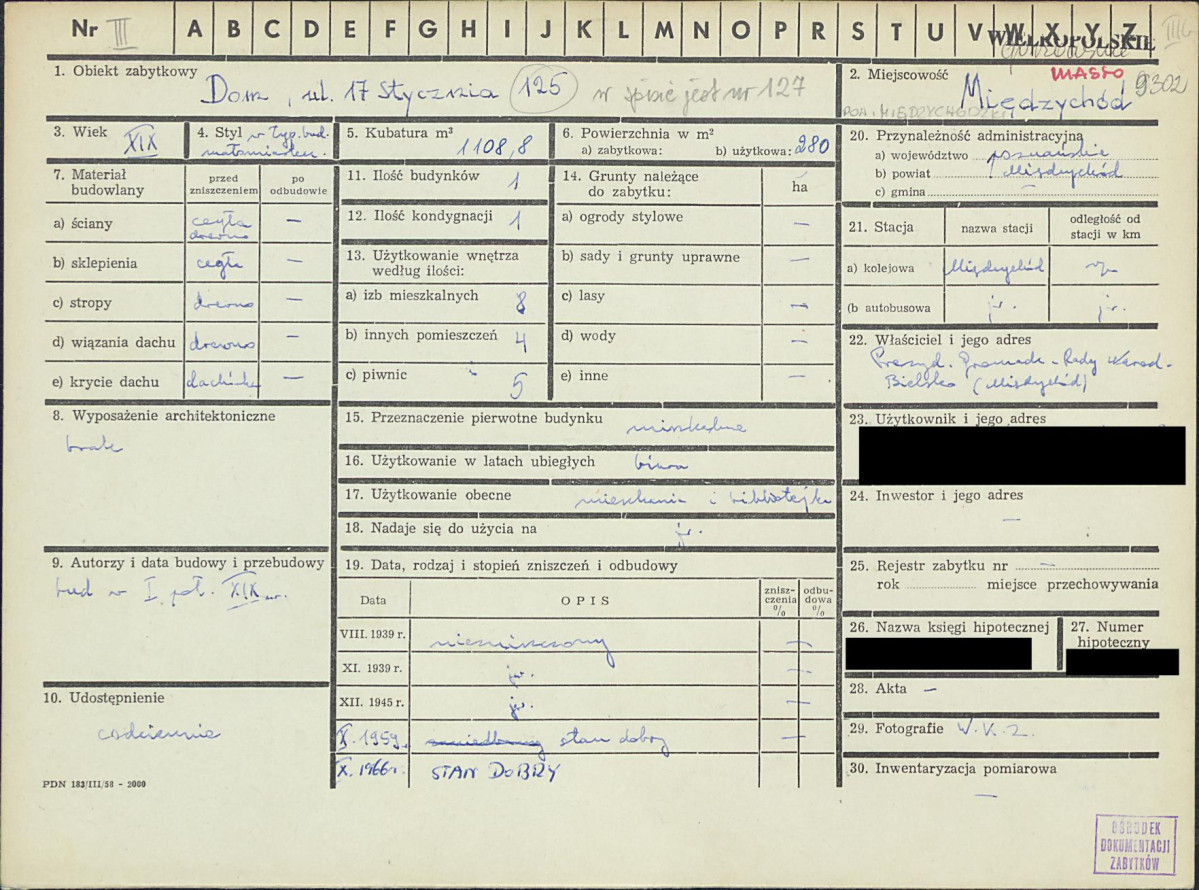 Nr III A B C D E F G H I J K L M N O P R S T U V W X Y Z
WIELKOPOLSKIE
1. Obiekt zabytkowy
Dom, ul. 17 Stycznia 125 w spisie jest nr 127
2. Miejscowość MIASTO 9302
POW. MIĘDZYCHODZKI
Międzychód
3. Wiek XIX
4. Styl w typ. bud. małomiasteczk.
5. Kubatura m³
1108,8
6. Powierzchnia w m²
a) zabytkowa: b) użytkowa: 280
7. Materiał budowlany
przed zniszczeniem
po odbudowie
a) ściany cegła drewno —
b) sklepienia cegła —
c) stropy drewno —
d) wiązania dachu drewno —
e) krycie dachu dachówka —
8. Wyposażenie architektoniczne
brak
9. Autorzy i data budowy i przebudowy
bud w I. poł. XIX w.
10. Udostępnienie
codziennie
11. Ilość budynków 1
12. Ilość kondygnacji 1
13. Użytkowanie wnętrza według ilości:
a) izb mieszkalnych 8
b) innych pomieszczeń 4
c) piwnic 5
14. Grunty należące do zabytku: ha
a) ogrody stylowe —
b) sady i grunty uprawne —
c) lasy —
d) wody —
e) inne —
15. Przeznaczenie pierwotne budynku mieszkalne
16. Użytkowanie w latach ubiegłych biura
17. Użytkowanie obecne mieszkania i biblioteka
18. Nadaje się do użycia na jw.
19. Data, rodzaj i stopień zniszczeń i odbudowy
Data OPIS zniszczenia % odbudowa %
VIII. 1939 r. niezniszczony —
XI. 1939 r. jw. —
XII. 1945 r. jw. —
X. 1959. stan dobry —
X. 1966 r. STAN DOBRY
20. Przynależność administracyjna
a) województwo poznańskie
b) powiat Międzychód
c) gmina —
21. Stacja nazwa stacji odległość od stacji w km
a) kolejowa Międzychód
(b autobusowa jw. jw.
22. Właściciel i jego adres
Prezyd. Gromadz. Rady Narod.
Bielsko (Międzychód)
23. Użytkownik i jego adres
24. Inwestor i jego adres
—
25. Rejestr zabytku nr —
rok miejsce przechowywania
26. Nazwa księgi hipotecznej
27. Numer hipoteczny
28. Akta —
29. Fotografie W.K.Z.
30. Inwentaryzacja pomiarowa
—
PDN 183/III/58 - 2000
OŚRODEK
DOKUMENTACJI
ZABYTKÓW